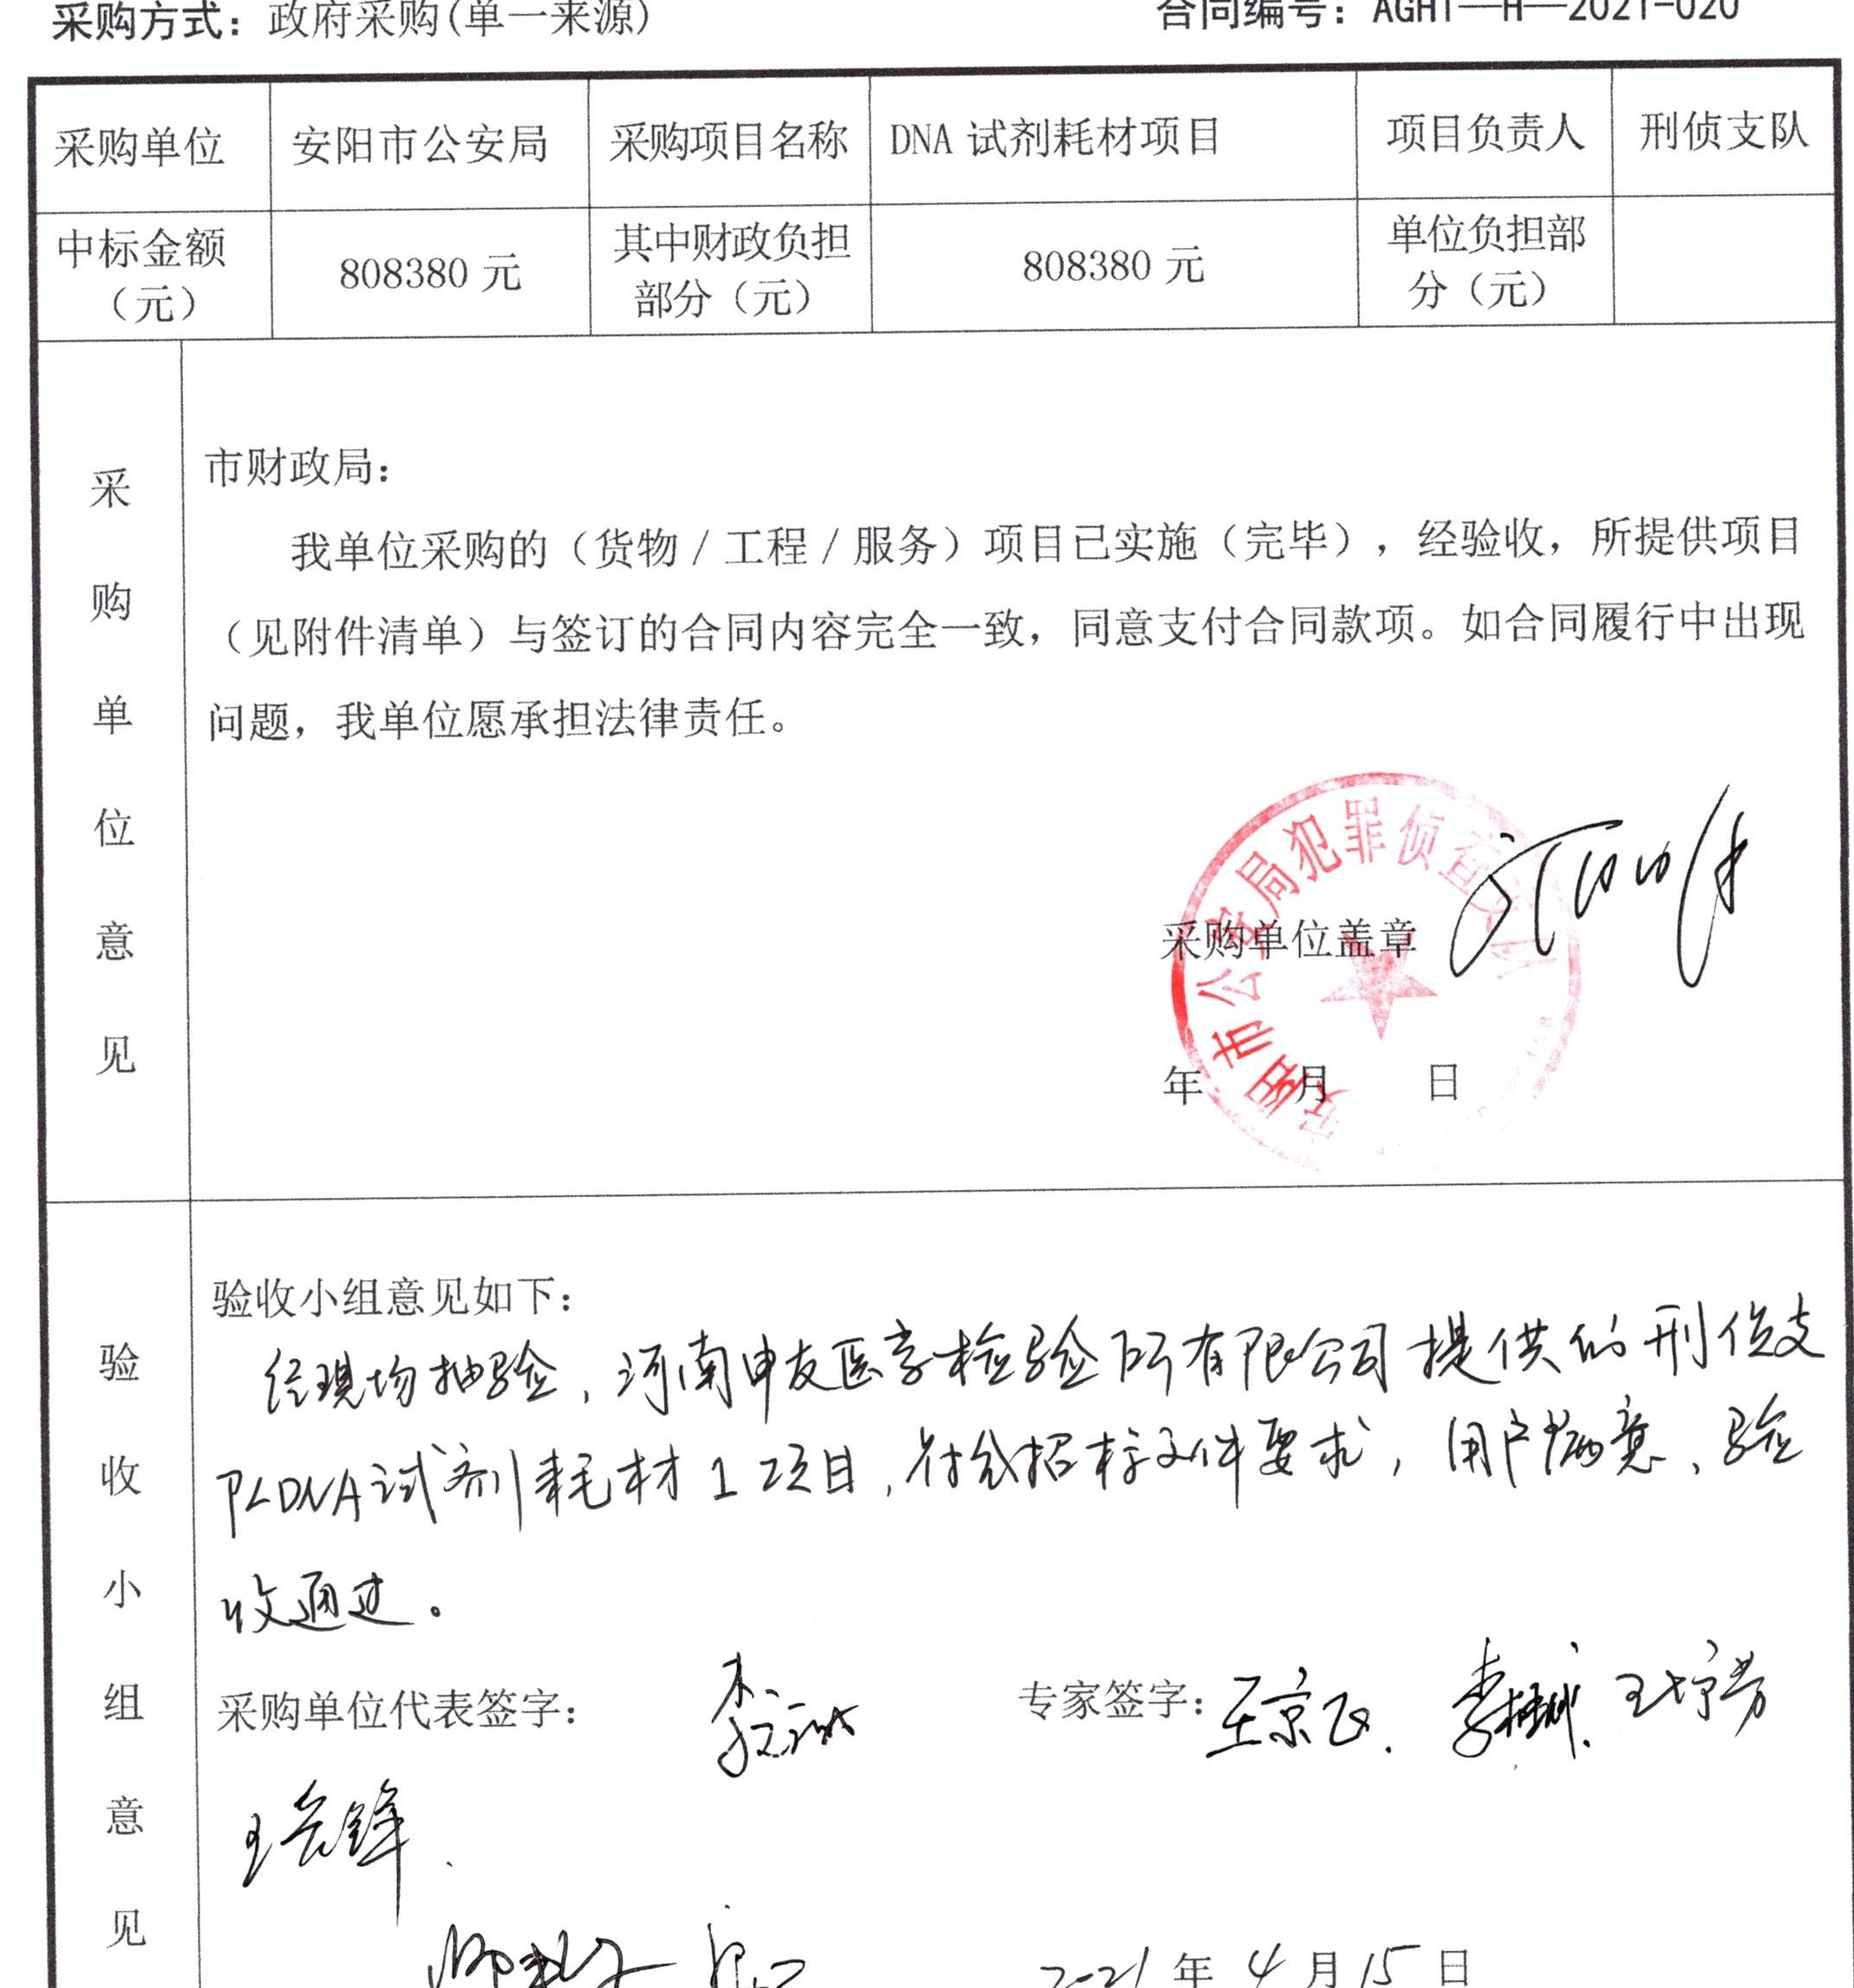 采购方式：政府采购(单一来源)
合同编号：AGHT—H—2021-020
采购单位
安阳市公安局
采购项目名称
DNA 试剂耗材项目
项目负责人
刑侦支队
中标金额
（元）
808380 元
其中财政负担
部分（元）
808380 元
单位负担部
分（元）
采购单位意见
市财政局：
我单位采购的（货物／工程／服务）项目已实施（完毕），经验收，所提供项目
（见附件清单）与签订的合同内容完全一致，同意支付合同款项。如合同履行中出现
问题，我单位愿承担法律责任。
安阳市公安局犯罪侦查支队
采购单位盖章
年 月 日
验收小组意见
验收小组意见如下：
经现场抽验，河南申友医学检验所有限公司提供的刑侦支
队DNA试剂耗材1项目，符合招标文件要求，用户满意，验
收通过。
采购单位代表签字：
专家签字：王京飞.
2021年4月15日